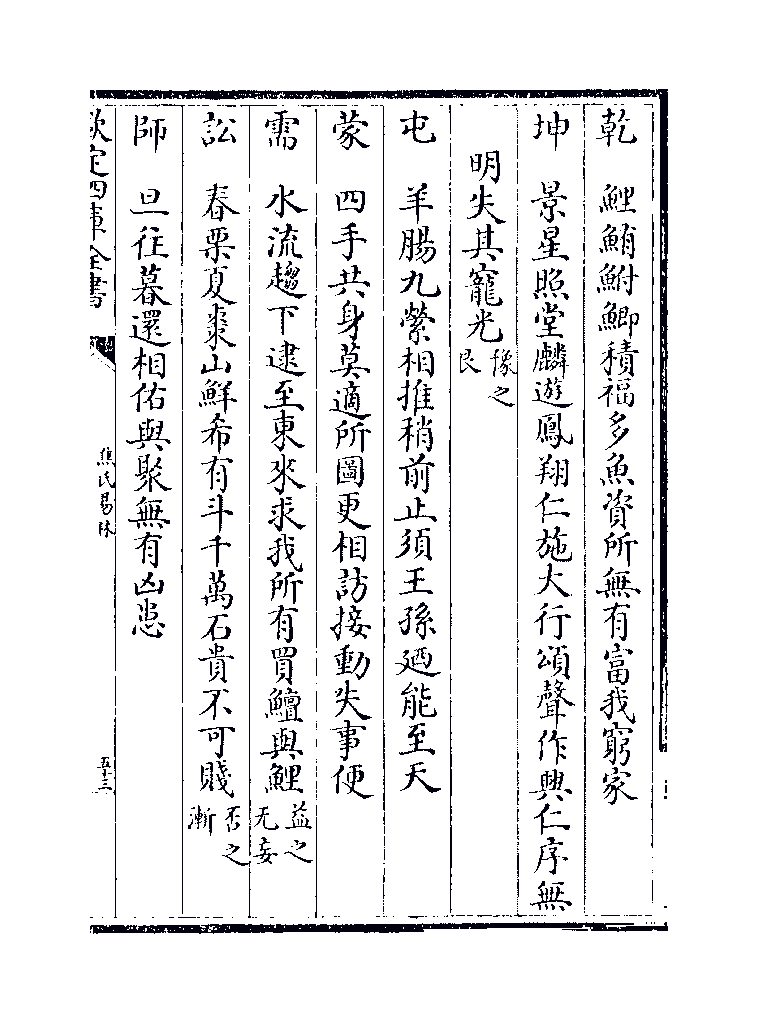 乾　鯉鮪鮒鯽積福多魚資所無有富我窮家
坤　景星照堂麟遊鳳翔仁施大行頌聲作興仁序無
明失其寵光豫之艮
屯　羊腸九縈相推稍前止須王孫廼能至天
蒙　四手共身莫適所圖更相訪接動失事便
需　水流趨下逮至東來求我所有買鱣與鯉益之无妄
訟　春栗夏棗山鮮希有斗千萬石貴不可賤否之漸
師　旦往暮還相佑與聚無有凶恙
欽定四庫全書
焦氏易林
五十三